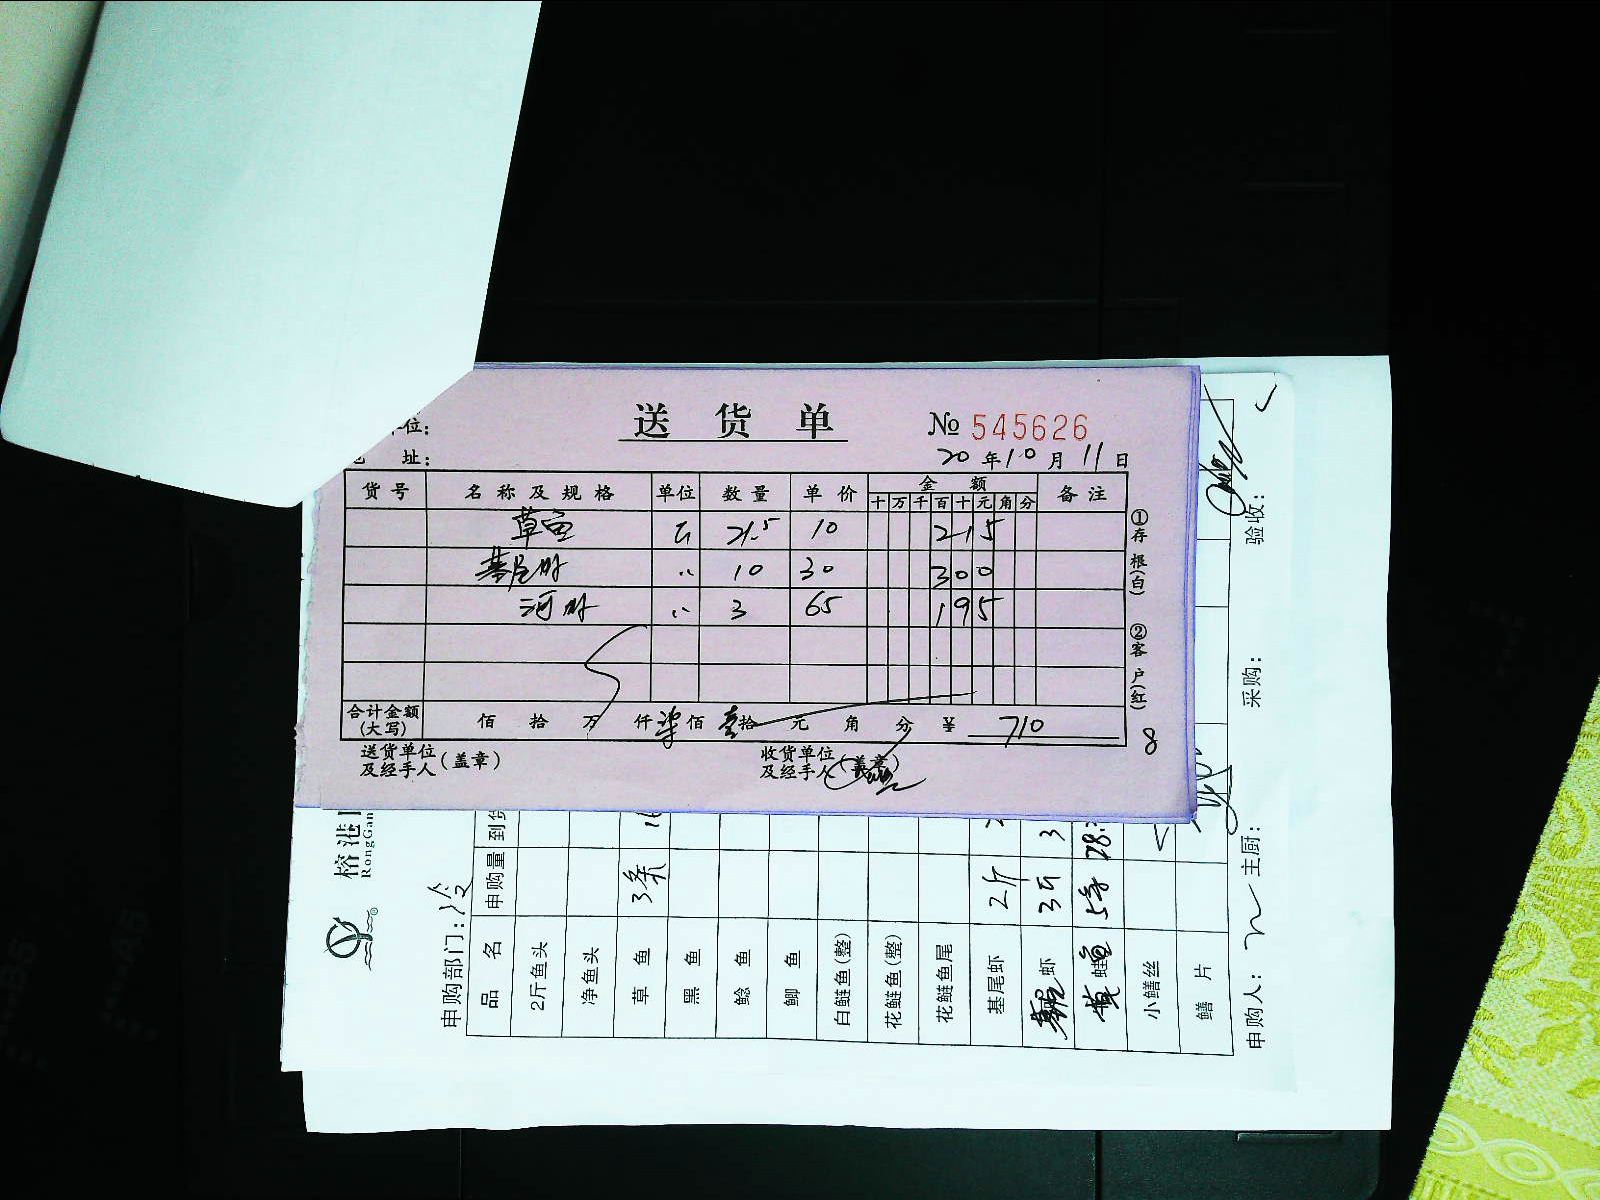 送 货 单
№ 545626
位:
址:
20 年 10 月 11 日
货号 名称及规格 单位 数量 单价 金额 备注
十 万 千 百 十 元 角 分
草鱼 斤 21.5 10 215
基尾虾 〃 10 30 300
河虾 〃 3 65 195
合计金额(大写) 佰 拾 万 仟 柒 佰 壹 拾 元 角 分 ¥ 710
送货单位及经手人(盖章)
收货单位及经手人(盖章)
①存根(白)
②客户(红)
8
榕港
RongGan
申购部门:
品名 申购量 到货
2斤鱼头
净鱼头
草鱼 3条
黑鱼
鲶鱼
鲫鱼
白鲢鱼(整)
花鲢鱼(整)
花鲢鱼尾
基尾虾 2斤
虾 3斤 3
黄鳝
小鳝丝
鳝片
申购人: 主厨: 采购: 验收: